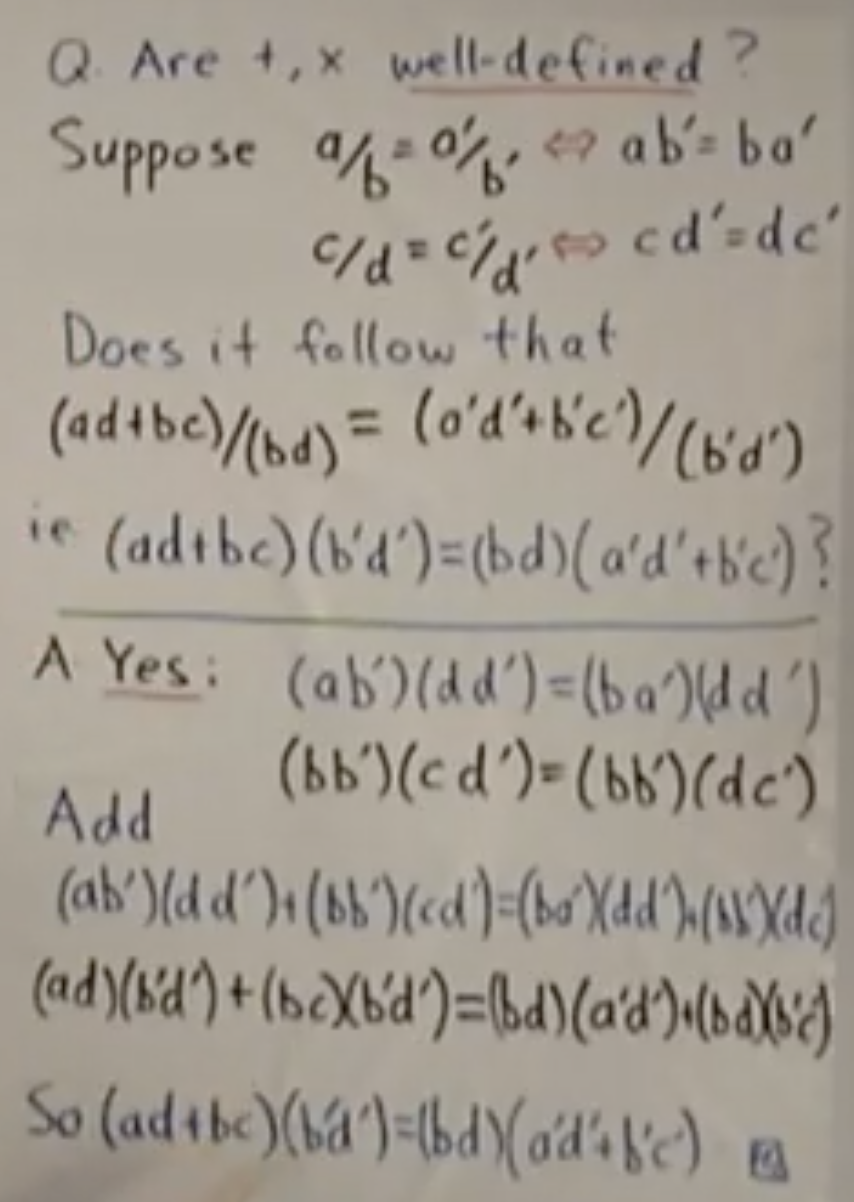 Q. Are +, x well-defined?
Suppose a/b = a'/b' ⇔ ab' = ba'
c/d = c'/d' ⇔ cd' = dc'
Does it follow that
(ad+bc)/(bd) = (a'd'+b'c')/(b'd')
ie (ad+bc)(b'd')=(bd)(a'd'+b'c')?
A Yes: (ab')(dd')=(ba')(dd')
(bb')(cd')=(bb')(dc')
Add
(ab')(dd')+(bb')(cd')=(ba')(dd')+(bb')(dc')
(ad)(b'd')+(bc)(b'd')=(bd)(a'd')+(bd)(b'c')
So (ad+bc)(b'd')=(bd)(a'd'+b'c')